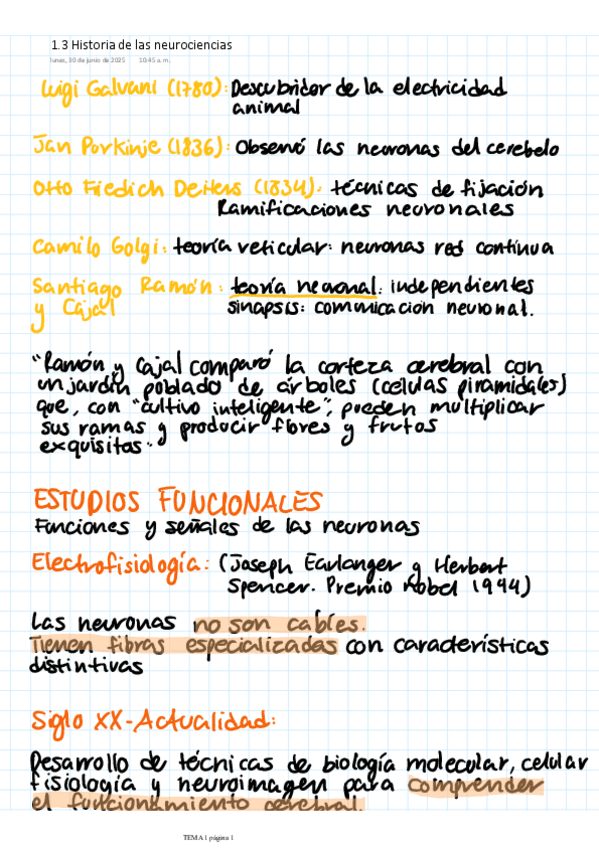 1.3 Historia de las neurociencias
lunes, 30 de junio de 2025 10:45 a. m.
Luigi Galvani (1780): Descubridor de la electricidad
animal
Jan Porkinje (1836): Observó las neuronas del cerebelo
Otto Fiedich Deiters (1834): técnicas de fijación
Ramificaciones neuronales
Camilo Golgi: teoría reticular: neuronas red continua
Santiago Ramón: teoría neuronal: independientes
y Cajal sinapsis: comunicación neuronal.
"Ramón y Cajal comparó la corteza cerebral con
un jardín poblado de árboles (células piramidales)
que, con "cultivo inteligente", pueden multiplicar
sus ramas y producir flores y frutos
exquisitos."
ESTUDIOS FUNCIONALES
Funciones y señales de las neuronas
Electrofisiología: (Joseph Earlanger y Herbert
Spencer. Premio Nobel 1944)
Las neuronas no son cables.
Tienen fibras especializadas con características
distintivas
Siglo XX-Actualidad:
Desarrollo de técnicas de biología molecular, celular
fisiología y neuroimagen para comprender
el funcionamiento cerebral.
TEMA 1 página 1